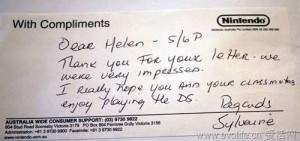 With Compliments
Nintendo
Dear Helen - 5/6P
Thank you for your letter - we
were very impressed.
I really hope you and your classmates
enjoy playing the DS.
Regards
Sylvaine
AUSTRALIA WIDE CONSUMER SUPPORT: (03) 9730 9822
804 Stud Road Scoresby Victoria 3179 PO Box 804 Ferntree Gully Victoria 3156
Administration: +61 3 9730 9900 Facsimile:
www.evolife.cn 爱活网